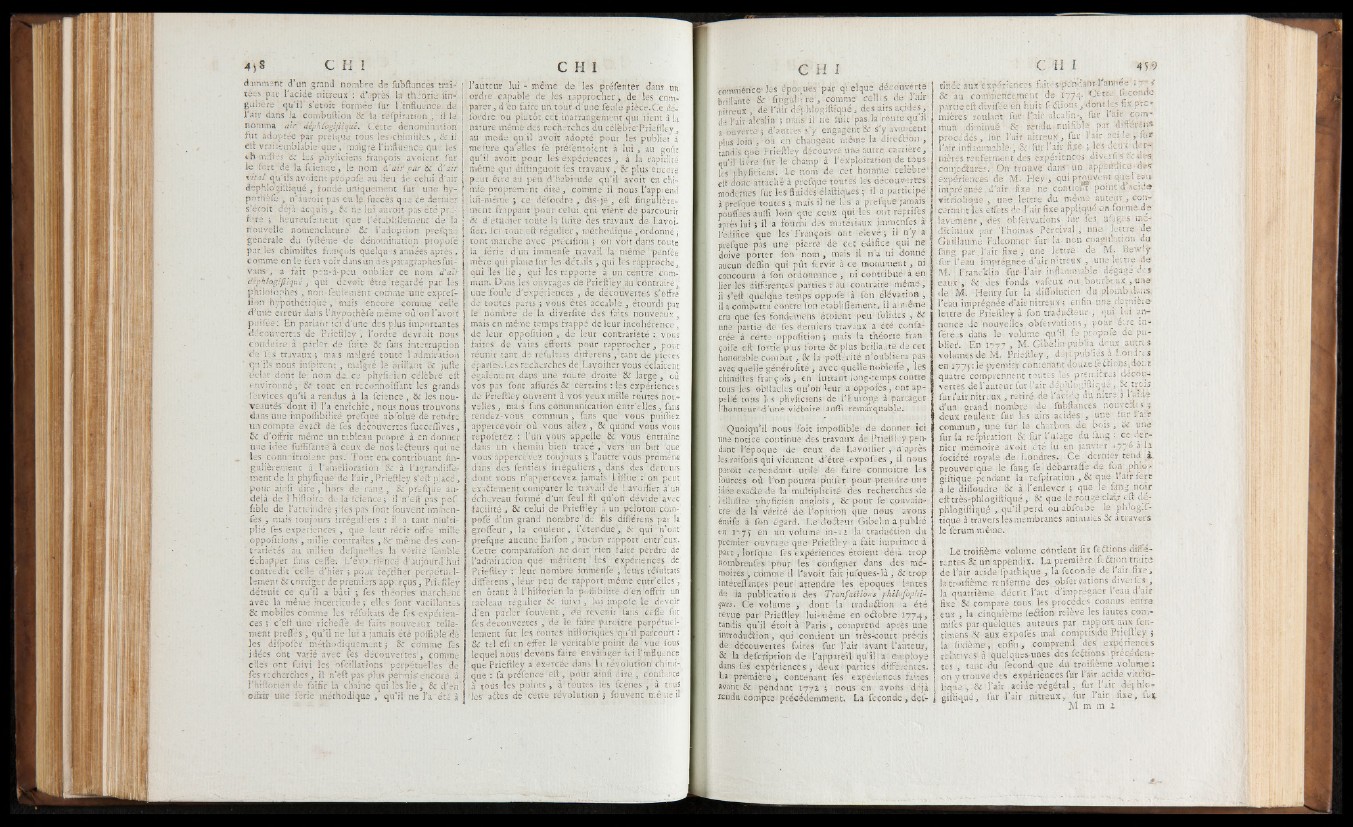 438 C H I
donnent d'un grand nombre de substances trai-
tées par l'acide nitreux ; d'après la théorie sin-
gulière qu'il s'étoit formée sur l'influence de
l'air dans la combustion & la respiration, il le
nomma air déphlogistiqué. Cette dénomination
fut adoptée par presque tous les chimistes, & il
est vraisemblable que, malgré l'influence que les
chimistes & les physiciens françois avoient sur
le sort de la science, le nom d'air pur & d'air
vital qu'ils avoient proposé au lieu de celui d'air
déphlogistiqué, fondé uniquement sur une hy-
pothèse, n'auroit pas eu le succès que ce dernier
s'étoit déjà acquis, & ne lui auroit pas été pré-
féré ; heureusement que l'établissement de la
nouvelle nomenclature & l'adoption presque
générale du systême de dénomination proposé
par les chimistes françois quelques années après,
comme on le fera voir dans un des paragraphes sui-
vans, a fait peu-à-peu oublier ce nom d'air
déphlogistiqué, qui devoit être regardé par les
philosophes, non seulement comme une expres-
sion hypothétique, mais encore comme celle
d'une erreur dans l'hypothèse même où on l'avoit
puisée. En partant ici d'une des plus importantes
découvertes de Priestley, l'ordre devroit nous
conduire à parler de suite & sans interruption
de ses travaux ; mais malgré toute l'admiration
qu'ils nous inspirent, malgré le brillant & juste
éclat dont le nom de ce physicien célèbre est
environné, & tout en reconnoissant les grands
services qu'il a rendus à la science, & les nou-
veautés dont il l'a enrichie, nous nous trouvons
dans une impossibilité presque absolue de rendre
un compte exact de ses découvertes successives,
& d'offrir même un tableau propre à en donner
une idée suffisante à ceux de nos lecteurs qui ne
les connoîtroient pas. Tout en contribuant sin-
gulièrement à l'amélioration & à l'agrandisse-
ment de la physique de l'air, Priestley s'est placé,
pour ainsi dire, hors de rang, & presque au-
delà de l'histoire de la science ; il n'est pas pos-
sible de l'atteindre ; ses pas sont souvent immen-
ses, mais toujours irréguliers : il a tant multi-
plié ses expériences, que leur récit offre mille
oppositions, mille contrastes, & même des con-
trariétés au milieu desquelles la vérité semble
échapper sans cesse. L'expérience d'aujourd'hui
contredit celle d'hier ; pour rectifier perpétuel-
lement & corriger de premiers apperçus, Priestley
détruit ce qu'il a bâti ; ses théories marchent
avec la même incertitude ; elles sont vacillantes
& mobiles comme les résultats de ses expérien-
ces ; c'est une richesse de faits nouveaux telle-
ment pressés, qu'il ne lui a jamais été possible de
les disposer méthodiquement ; & comme ses
idées ont varié avec ses découvertes, comme
elles ont suivi les oscillations perpétuelles de
ses recherches, il n'est pas plus permis encore à
l'historien de saisir la chaîne qui les lie, & d'en
offrir une série méthodique, qu'il ne l'a été à
C H I
l'auteur lui-même de les présenter dans un
ordre capable de les rapprocher, de les com-
parer, d'en faire un tout d'une seule pièce. Ce dé-
sordre ou plutôt cet inarrangement qui tient à la
nature même des recherches du célèbre Priestley,
au mode qu'il avoit adopté pour les publier à
mesure qu'elles se présentoient à lui, au goût
qu'il avoit pour les expériences, à la rapidité
même qui distinguoit ses travaux, & plus encore
peut être au peu d'habitude qu'il avoit en chi-
mie proprement dite, comme il nous l'apprend
lui-même ; ce désordre, dis-je, est singulière-
ment frappant pour celui qui vient de parcourir
& d'étudier toute la suite des travaux de Lavoi-
sier. Ici tout est régulier, méthodique, ordonné ;
tout marche avec précision ; on voit dans toute
la série d'un immense travail la même pensée
mère qui plane sur les détails, qui les rapproche,
qui les lie, qui les rapporte à un centre com-
mun. Dans les ouvrages de Priestley au contraire,
une foule d'expériences, de découvertes s'offre
de toutes parts ; vous êtes accablé, étourdi par
le nombre de la diversité des faits nouveaux,
mais en même temps frappé de leur incohérence,
de leur opposition, de leur contrariété : vous
faites de vains efforts pour rapprocher, pour
réunir tant de résultats différens, tant de pièces
éparses. Les recherches de Lavoisier vous éclairent
également dans une route droite & large, où
vos pas sont assurés & certains : les expériences
de Priestley ouvrent à vos yeux mille routes nou-
velles, mais sans communication entr'elles, sans
rendez-vous commun, sans que vous puissiez
appercevoir où vous allez, & quand vous vous
reposerez : l'un vous appelle & vous entraîne
dans un chemin bien tracé, vers un but que
vous appercevez toujours ; l'autre vous promène
dans des sentiers irréguliers, dans des détours
dont vous n'appercevez jamais l'issue : on peut
exactement comparer le travail de Lavoisier à un
écheveau formé d'un seul fil qu'on dévide avec
facilité, & celui de Priestley à un peloton com-
posé d'un grand nombre de fils différens par la
grosseur, la couleur, l'étendue, & qui n'ont
presque aucune liaison, aucun rapport entr'eux.
Cette comparaison ne doit rien faire perdre de
l'admiration que méritent les expériences de
Priestley : leur nombre immense, leurs résultats
différens, leur peu de rapport même entr'elles,
en ôtant à l'historien la possibilité d'en offrir un
tableau régulier & suivi, lui impose le devoir
d'en parler souvent, de revenir sans cesse sur
ses découvertes, de le faire paroître perpétuel-
lement sur les routes historiques qu'il parcourt :
& tel est en effet le véritable point de vue sous
lequel nous devons faire envisager ici l'influence
que Priestley a exercée dans la révolution chimi-
que : sa présence est, pour ainsi dire, continue
à tous les points, à toutes les scènes, à tous
les actes de cette révolution ; souvent même il
C H I
commence les époques par quelque découverte
brillante & singulière, comme celles de l'air
nitreux, de l'air déphlogistiqué, des airs acides,
de l'air alcalin ; mais il ne suit pas la route qu'il
a ouverte ; d'autres s'y engagent & s'y avancent
plus loin, ou en changent même la direction,
tandis que Priestley découvre une autre carrière,
qu'il livre sur le champ à l'exploitation de tous
les physiciens. Le nom de cet homme célèbre
est donc attaché à presque toutes les découvertes
modernes sur les fluides élastiques ; il a participé
à presque toutes ; mais il ne les a presque jamais
poussées aussi loin que ceux qui les ont reprises
après lui ; il a fourni des matériaux immenses à
l'édifice que les François ont élevé ; il n'y a
presque pas une pierre de cet édifice qui ne
doive porter son nom, mais il n'a ni donné
aucun dessin qui pût servir à ce monument, ni
concouru à son ordonnance, ni contribué à en
lier les différentes parties : au contraire même,
il s'est quelque temps opposé à son élévation,
il a combattu contre son établissement, il a même
cru que ses fondemens étoient peu solides, &
une partie de ses derniers travaux a été consa-
crée à cette opposition ; mais la théorie fran-
çoise est sortie plus forte & plus brillante de cet
honorable combat, & la postérité n'oubliera pas
avec quelle générosité, avec quelle noblesse, les
chimistes françois, en luttant long-temps contre
tous les obstacles qu'on leur a opposés, ont ap-
pelé tous les physiciens de l'Europe à partager
l'honneur d'une victoire aussi remarquable.
Quoiqu'il nous soit impossible de donner ici
une notice continue des travaux de Priestley pen-
dant l'époque de ceux de Lavoisier, d'après
les raisons qui viennent d'être exposées, il nous
paroît cependant utile de faire connoître les
sources où l'on pourra puiser pour prendre une
idée exacte de la multiplicité des recherches de
l'illustre physicien anglois, & pour se convain-
cre de la vérité de l'opinion que nous avons
émise à son égard. Le docteur Gibelin a publié
en 1775 en un volume in-12 la traduction du
premier ouvrage que Priestley a fait imprimer à
part, lorsque ses expériences étoient déjà trop
nombreuses pour les consigner dans des mé-
moires, comme il l'avoit fait jusques-là, & trop
intéressantes pour attendre les époques lentes
de la publication des Transactions philosophi-
ques. Ce volume, dont la traduction a été
revue par Priestley lui-même en octobre 1774,
tandis qu'il étoit à Paris, comprend après une
introduction, qui contient un très-court précis
de découvertes faites sur l'air avant l'auteur,
& la description de l'appareil qu'il a employé
dans ses expériences, deux parties différentes.
La première, contenant ses expériences faites
avant & pendant 1772 ; nous en avons déjà
rendu compte précédemment. La seconde, des-
C H I 459
tinée aux expériences faites pendant l'année 1773
& au commencement de 1774. Cette seconde
partie est divisée en huit sections, dont les six pre-
mières roulent sur l'air alcalin, sur l'air com-
mun diminué & rendu nuisible par différens
procédés, sur l'air nitreux, sur l'air acide, sur
l'air inflammable, & sur l'air fixe ; les deux der-
nières renferment des expériences diverses & des
conjectures. On trouve dans un appendice des
expériences de M. Hey, qui prouvent que l'eau
imprégnée d'air fixe ne contient point d'acide
vitriolique, une lettre du même auteur, con-
cernant les effets de l'air fixe appliqué en forme de
lavement, des observations sur les usages mé-
dicinaux par Thomas Percival, une lettre de
Guillaume Falconner sur la non coagulation du
sang par l'air fixe, une lettre de M. Bewly
sur l'eau imprégnée d'air nitreux, une lettre de
M. Francklin sur l'air inflammable dégagé des
eaux, & des fonds vaseux ou bourbeux, une
de M. Henry sur la dissolution du plomb dans
l'eau imprégnée d'air nitreux ; enfin une dernière
lettre de Priestley à son traducteur, qui lui an-
nonce de nouvelles observations, pour être in-
sérées dans le volume qu'il se propose de pu-
blier. En 1777, M. Gibelin publia deux autres
volumes de M. Priestley, déjà publiés à Londres
en 1775: le premier contenant douze sections, dont
quatre comprennent toutes les premières décou-
vertes de l'auteur sur l'air déphlogistiqué, & trois
sur l'air nitreux, retiré de l'acide du nitre à l'aide
d'un grand nombre de substances nouvelles ;
deux roulent sur les airs acides, une sur l'air
commun, une sur le charbon de bois, & une
sur la respiration & sur l'usage du sang : ce der-
nier mémoire avoit été lu en janvier 1776 à la
société royale de Londres. Ce dernier tend à
prouver que le sang se débarrasse de son phlo-
gistique pendant la respiration, & que l'air sert
à le dissoudre & à l'enlever ; que le sang noir
est très-phlogistiqué, & que le rouge clair est dé-
phlogistiqué, qu'il perd ou absorbe le phlogis-
tique à travers les membranes animales & à travers
le serum même.
Le troisième volume contient six sections diffé-
rentes & un appendix. La première section traite
de l'air acide spathique, la seconde de l'air fixe,
la troisième renferme des observations diverses,
la quatrième décrit l'art d'imprégner l'eau d'air
fixe & compare tous les procédés connus entre
eux, la cinquième section relève les fautes com-
mises par quelques auteurs par rapport aux sen-
timens & aux exposés mal compris de Priestley ;
la sixième, enfin, comprend des expériences
relatives à quelques-unes des sections précéden-
tes, tant du second que du troisième volume :
on y trouve des expériences sur l'air acide vitrio-
lique, & l'air acide végétal, sur l'air déphlo-
gistiqué, sur l'air nitreux, sur l'air fixe, sur
M m m 2